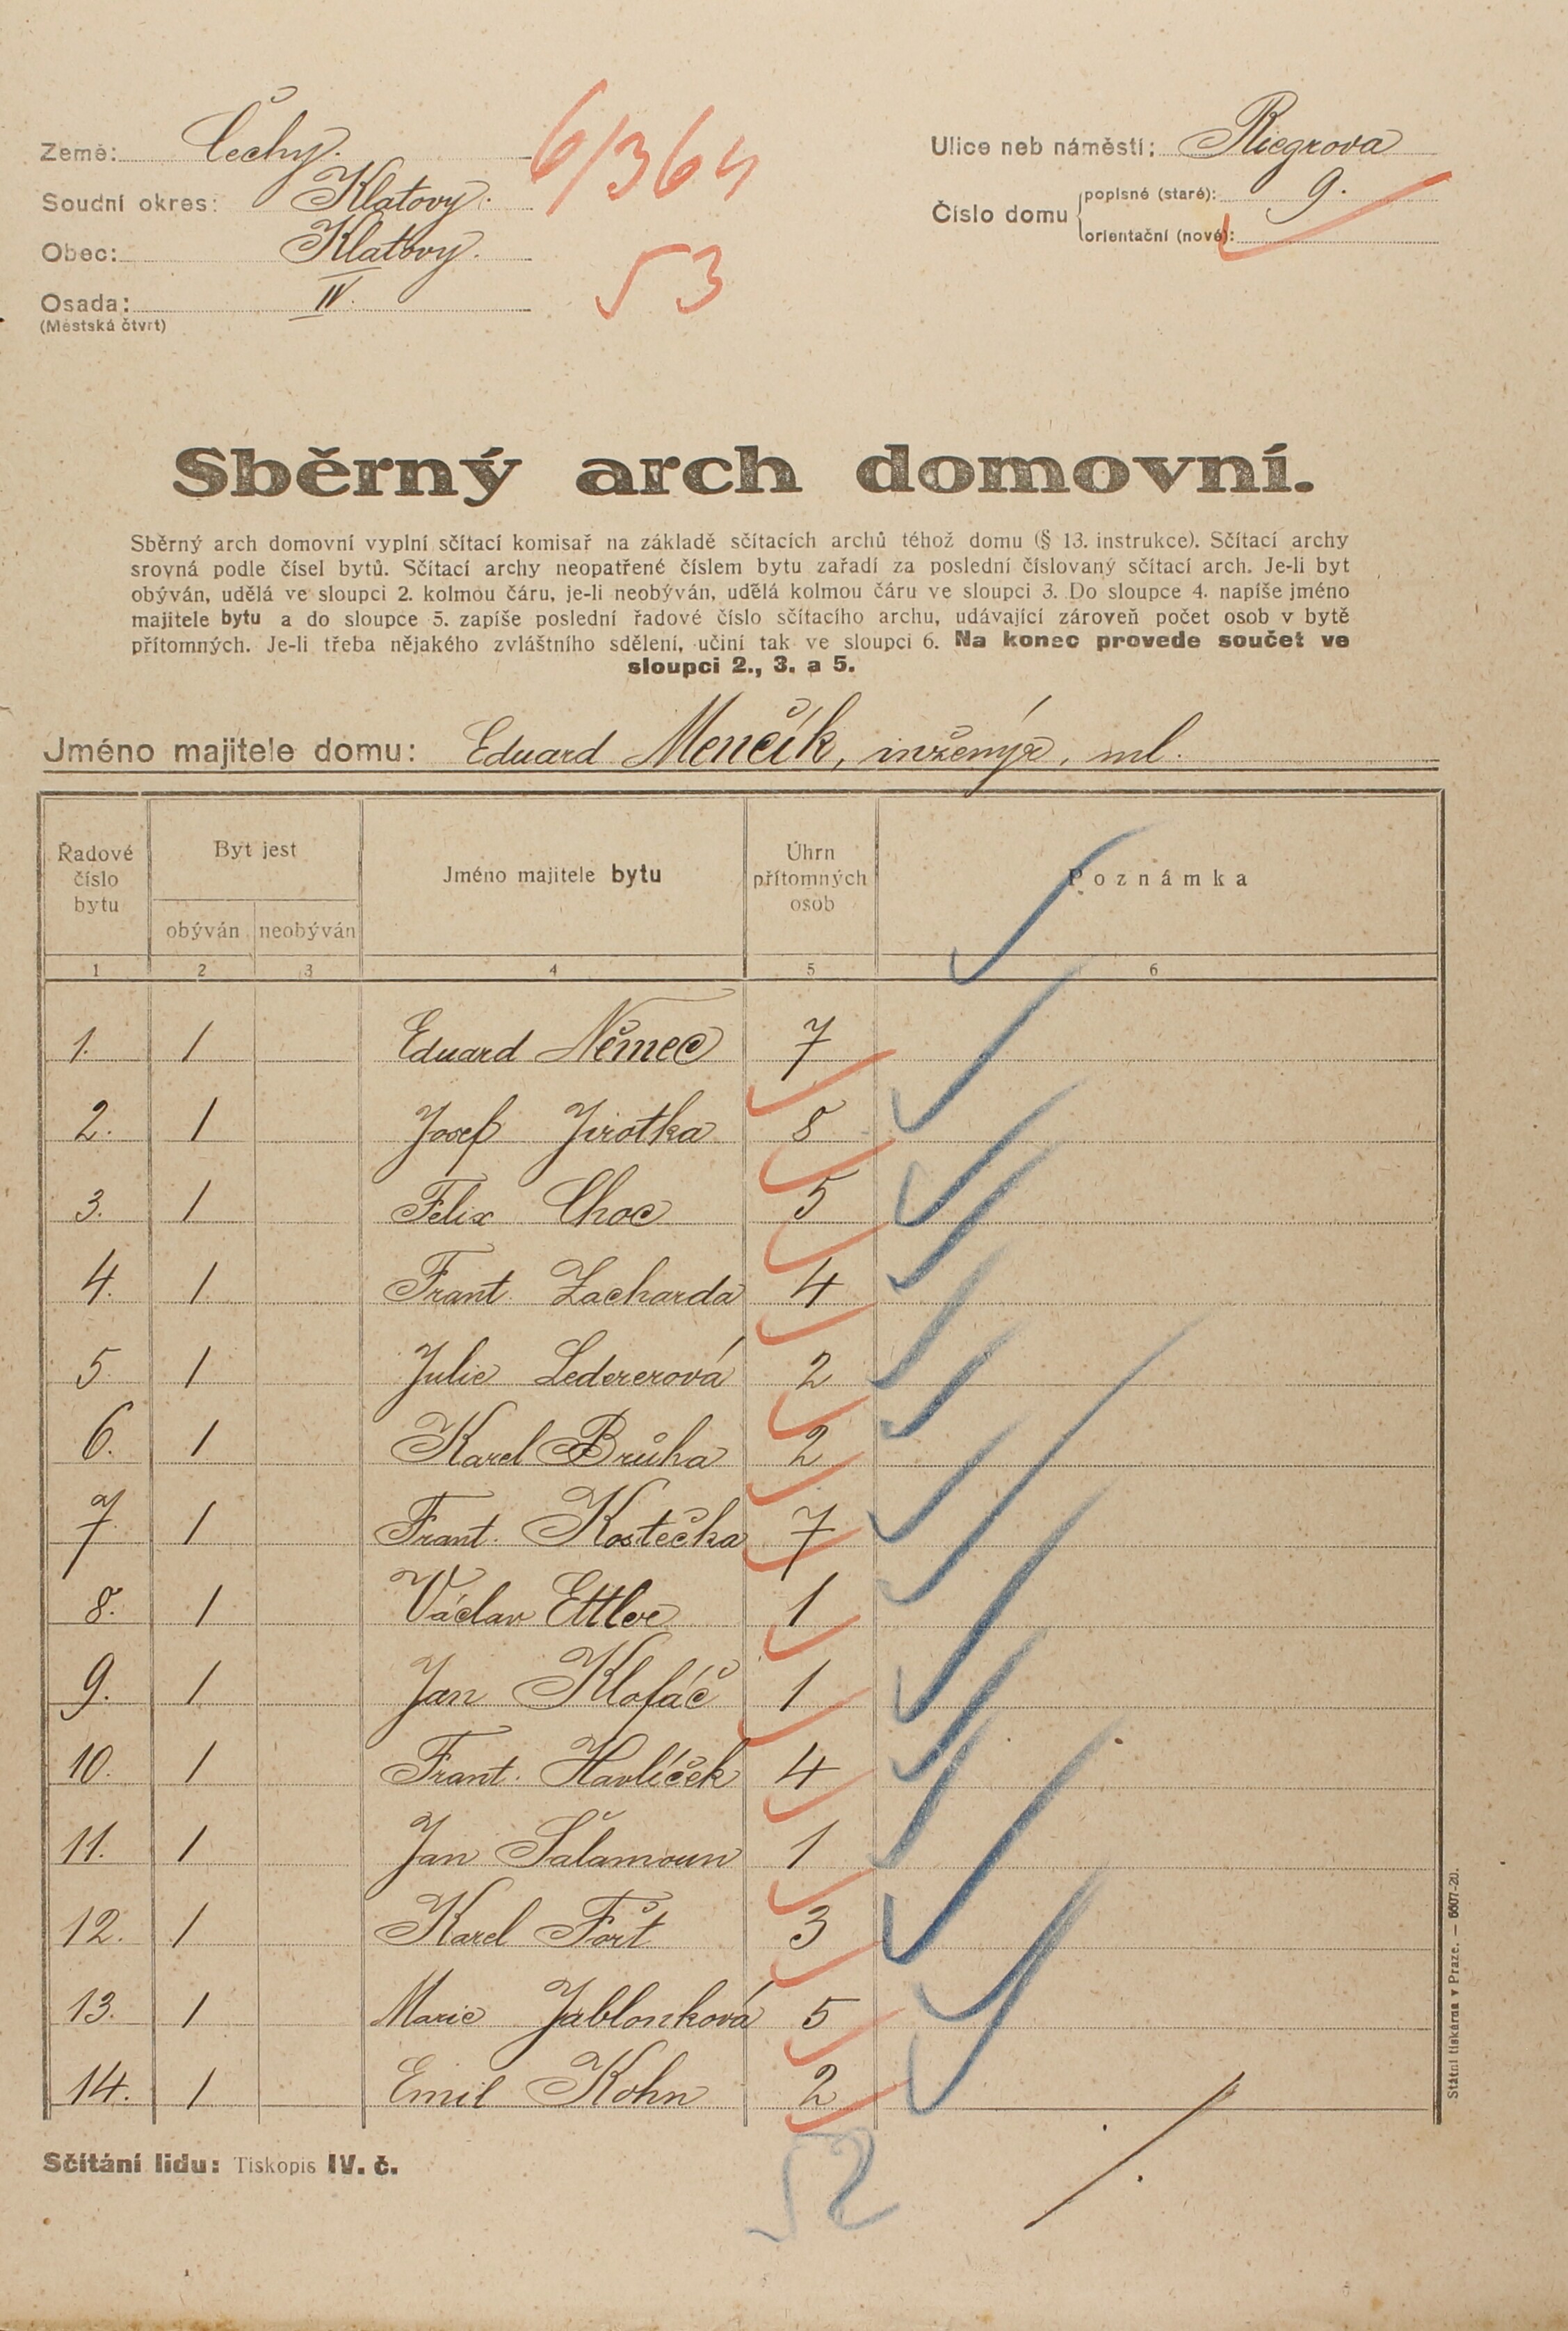 Země: Čechy.
Soudní okres: Klatovy.
Obec: Klatovy.
Osada: IV.
(Městská čtvrť)
6/364
53
Ulice neb náměstí: Riegrova
Číslo domu
popisné (staré): 9.
orientační (nové):
Sběrný arch domovní.
Sběrný arch domovní vyplní sčítací komisař na základě sčítacích archů téhož domu (§ 13. instrukce). Sčítací archy
srovná podle čísel bytů. Sčítací archy neopatřené číslem bytu zařadí za poslední číslovaný sčítací arch. Je-li byt
obýván, udělá ve sloupci 2. kolmou čáru, je-li neobýván, udělá kolmou čáru ve sloupci 3. Do sloupce 4. napíše jméno
majitele bytu a do sloupce 5. zapíše poslední řadové číslo sčítacího archu, udávající zároveň počet osob v bytě
přítomných. Je-li třeba nějakého zvláštního sdělení, učiní tak ve sloupci 6. Na konec provede součet ve
sloupci 2., 3. a 5.
Jméno majitele domu: Eduard Menčík, inženýr, ml.
Řadové číslo bytu
Byt jest
obýván neobýván
Jméno majitele bytu
Úhrn přítomných osob
Poznámka
1 2 3 4 5 6
1. 1 Eduard Němec 7
2. 1 Josef Jirotka 8
3. 1 Felix Choc 5
4. 1 Frant. Zacharda 4
5 1 Julie Ledererová 2
6. 1 Karel Brůha 2
7 1 Frant. Kostečka 7
8. 1 Václav Ettler 1
9. 1 Jan Klofáč 1
10. 1 Frant. Havlíček 4
11. 1 Jan Šalamoun 1
12. 1 Karel Fořt 3
13. 1 Marie Jablonková 5
14. 1 Emil Kohn 2
52
Sčítání lidu: Tiskopis IV. č.
Státní tiskárna v Praze. — 6607-20.